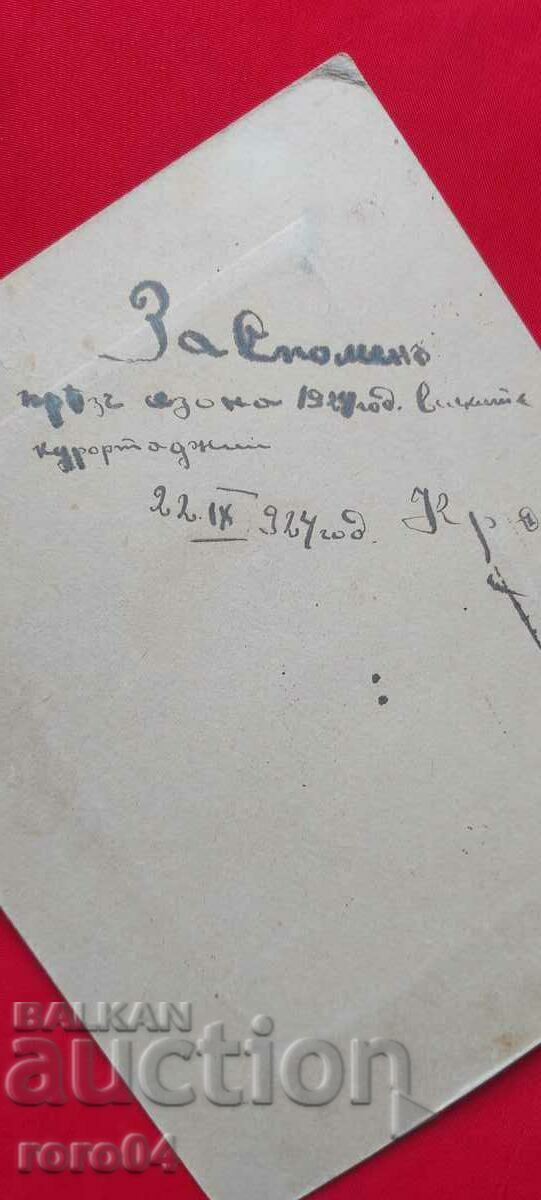 За Споменъ
прѣзъ сезона 1924 год. всичките
курортаджии
22.IX 924 год. Кр
BALKAN
auction
roro04